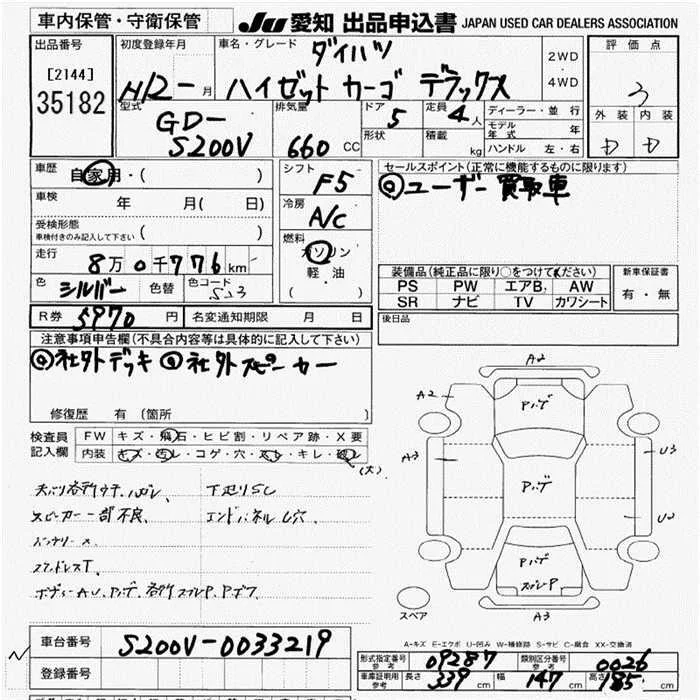 車内保管・守衛保管
JU 愛知 出品申込書 JAPAN USED CAR DEALERS ASSOCIATION
出品番号 初度登録年月 車名・グレード ダイハツ 2WD・4WD 評価点
[2144]
35182 H12- 月 ハイゼットカーゴ デラックス 3
型式 GD-S200V 排気量 660 CC ドア 5 定員 4人 ディーラー・並行 外装 内装
形状 積載 kg モデル年式 年 D D
ハンドル 左・右
車歴 自家用・( ) シフト F5 セールスポイント(正常に機能するものに限ります)
車検 年 月( 日) 冷房 A/C ◎ユーザー買取車
受検形態 車検付きのみ記入して下さい ( )
燃料 ガソリン 軽油 ( )
走行 8万0千776km
装備品(純正品に限り○をつけてください) 新車保証書
色 シルバー 色替 色コード S53 PS PW エアB AW 有・無
SR ナビ TV カワシート
R券 5970円 名変通知期限 月 日 後日品
注意事項申告欄(不具合内容等は具体的に記入して下さい)
◎社外デッキ ◎社外スピーカー
修復歴 有 (箇所 )
検査員記入欄 FW キズ・飛石・ヒビ割・リペア跡・X要
内装 キズ・汚レ・コゲ・穴・スレ・キレ・破レ (大)
下廻りSC
スピーカー一部不良 エンドパネルU穴
A2
A2
A3
U3
U2
A3
スペア
A-キズ E-エクボ U-凹み W-補修跡 S-サビ C-腐食 XX-交換済
車台番号 S200V-0033219
登録番号
形式指定番号 参考 09287 類別区分番号 参考 0026
車庫証明用 参考 長さ 339 cm 幅 147 cm 高さ 185 cm